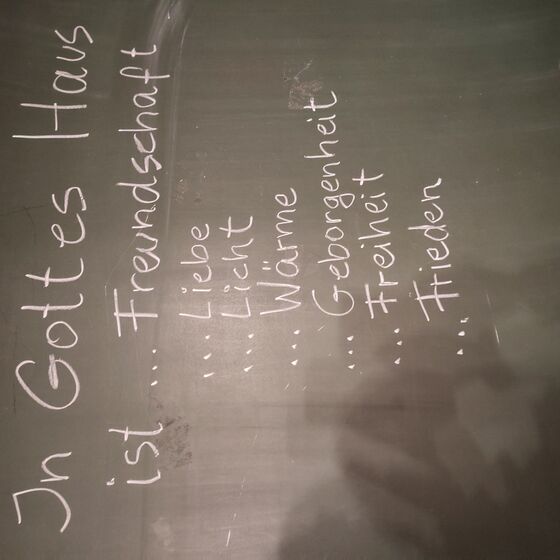 In Gottes Haus
ist ... Freundschaft
... Liebe
... Licht
... Wärme
... Geborgenheit
... Freiheit
... Frieden